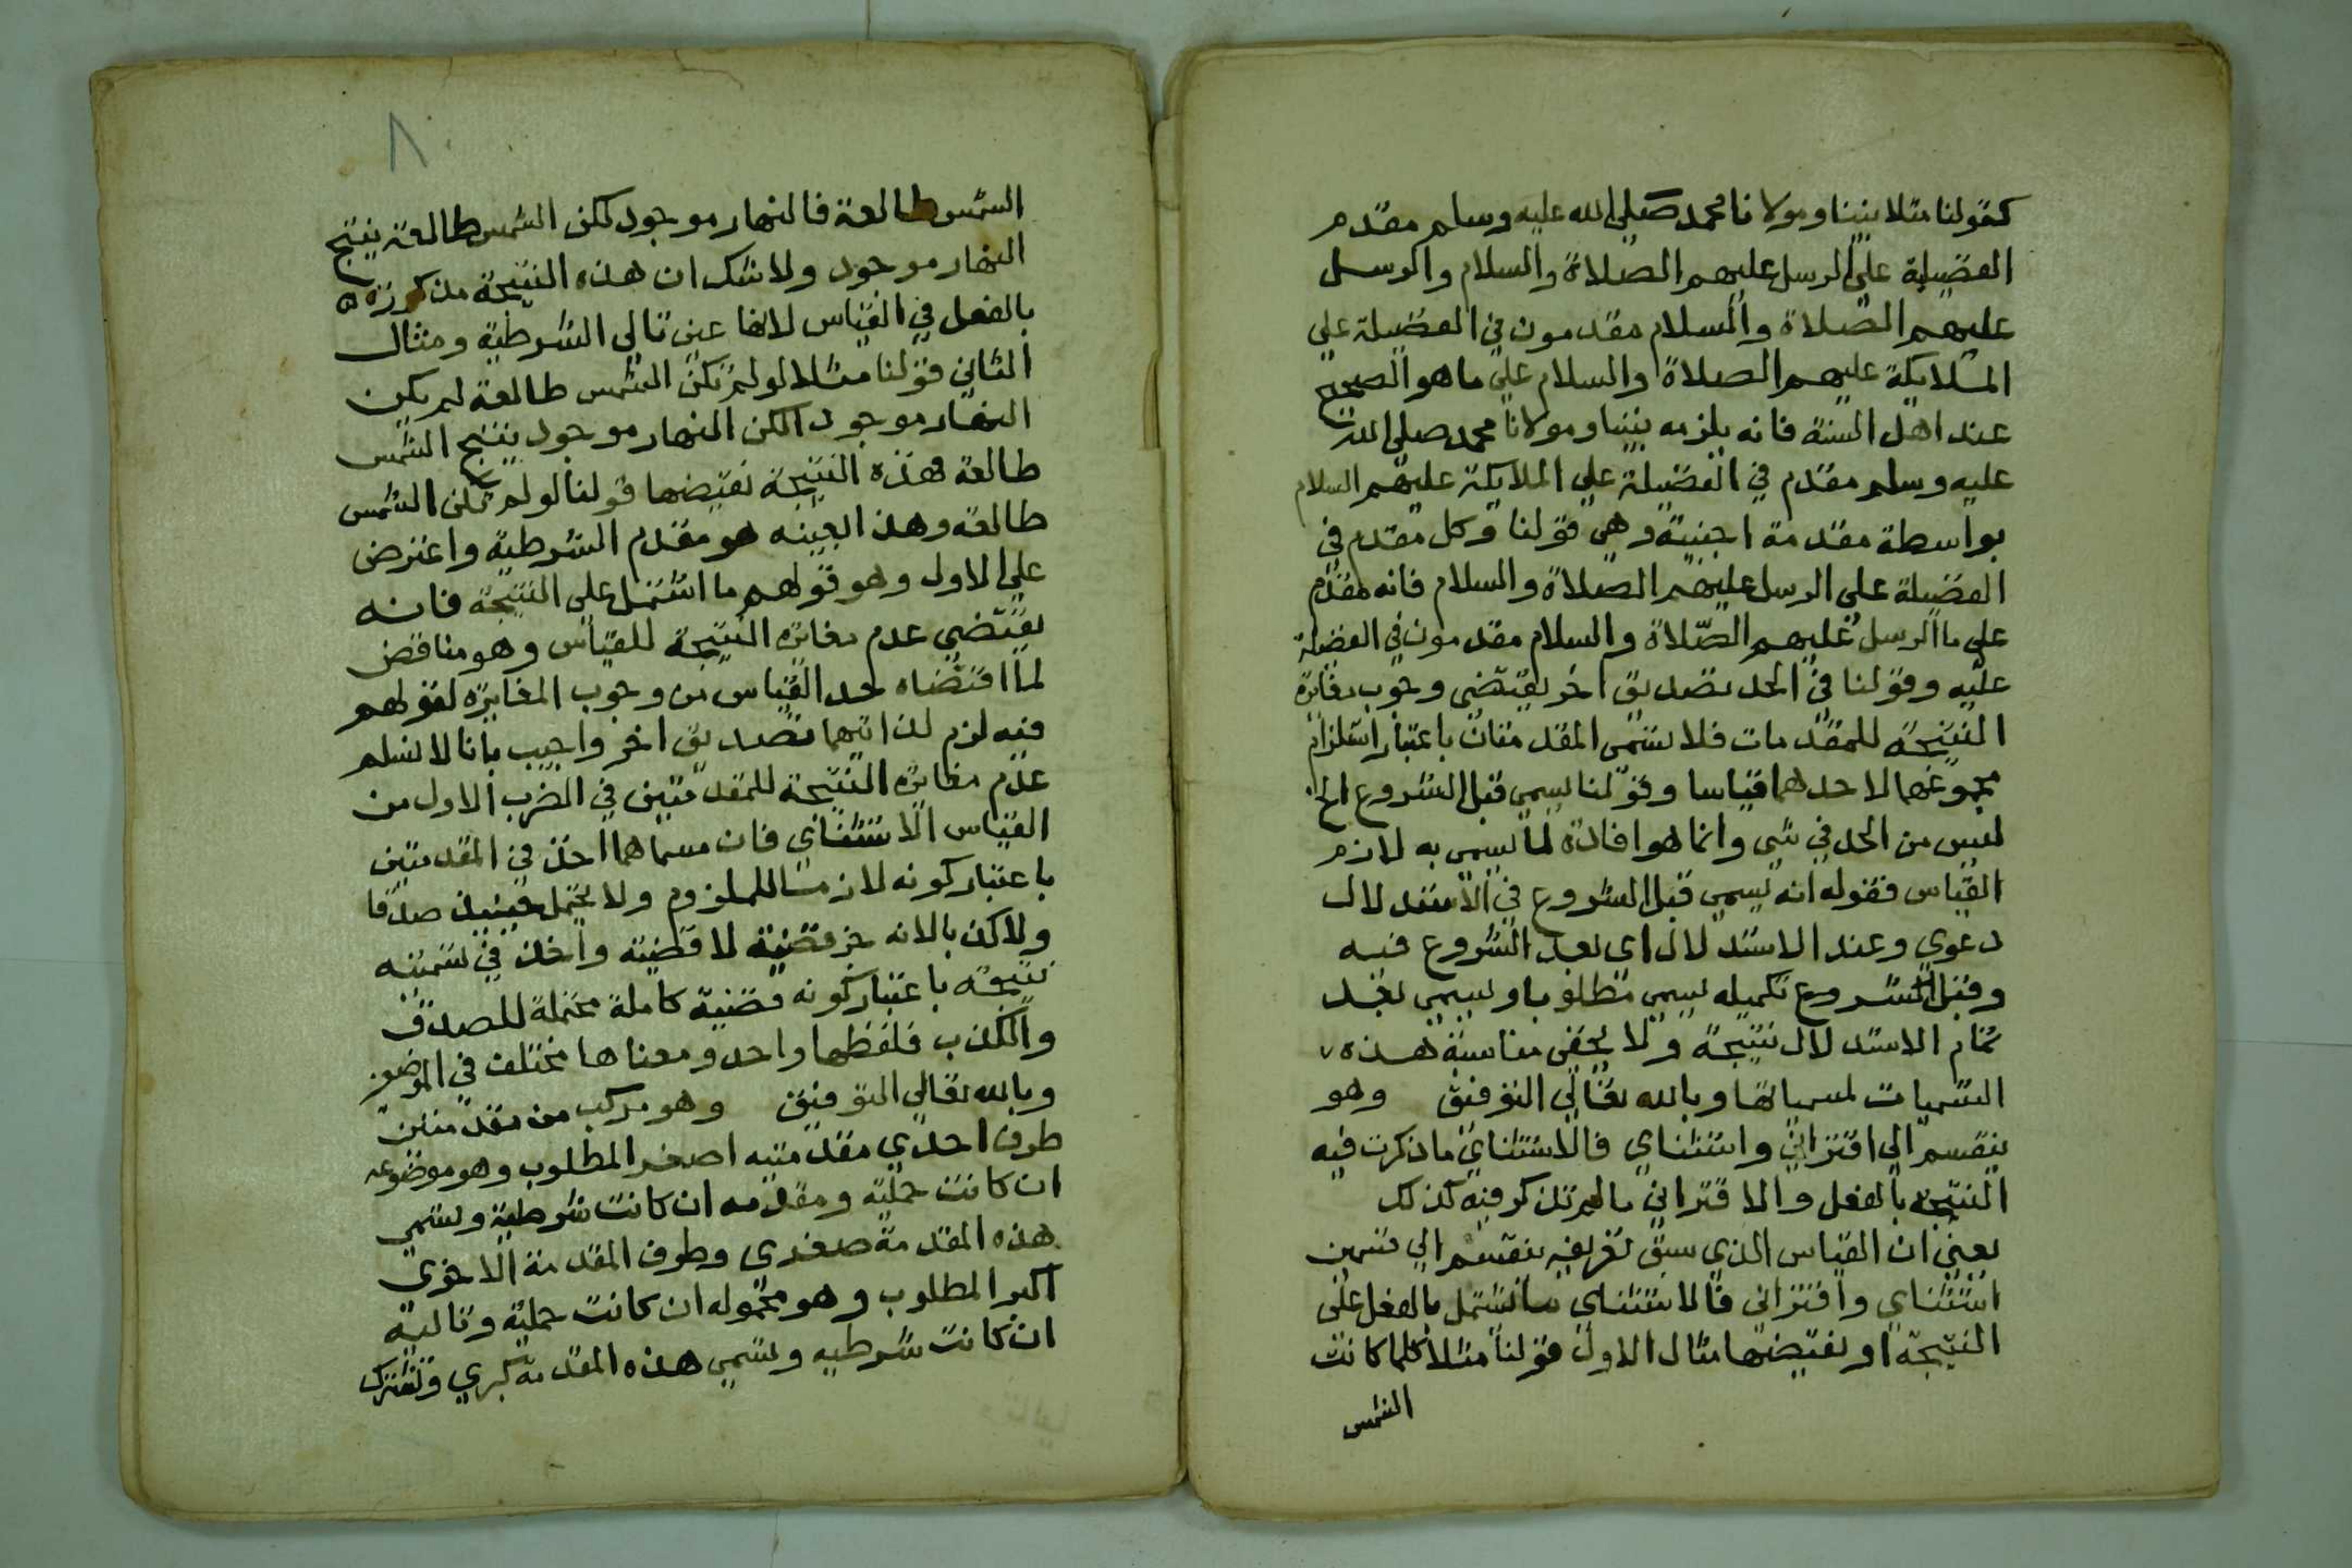 كقولنا مثلا نبينا ومولانا محمد صلى الله عليه وسلم مقدم
الفضيلة على الرسل عليهم الصلاة والسلام والرسل
عليهم الصلاة والسلام مقدمون في الفضيلة على
الملايكة عليهم الصلاة والسلام على ما هو الصحيح
عند اهل السنة فانه يلزمه نبينا ومولانا محمد صلى الله
عليه وسلم مقدم في الفضيلة على الملايكة عليهم السلام
بواسطة مقدمة اجنبية وهي قولنا وكل مقدم في
الفضيلة على الرسل عليهم الصلاة والسلام فانه مقدم
على ما الرسل عليهم الصلاة والسلام مقدمون في الفضيلة
عليه وقولنا في الحد تصديق اخر يقتضي وجوب مغايرة
النتيجة للمقدمات فلا تسمى المقدمتان باعتبار استلزام
مجموعهما لاحدهما قياسا وقولنا يسمى قبل الشروع الخ
ليس من الحد في شي وانما هو افادة لما يسمى به لازم
القياس فقوله انه يسمى قبل الشروع في الاستدلال
دعوي وعند الاستدلال اى بعد الشروع فيه
وقبل الشروع تكميله يسمى مطلوبا ويسمى بعد
تمام الاستدلال نتيجة ولا يخفى مناسبة هذه
التسميات لمسمياتها وبالله تعالى التوفيق وهو
ينقسم الي اقتراني واستثناي فالاستثناي ما ذكرت فيه
النتيجة بالفعل والاقتراني ما لم تذكر فيه كذلك
يعني ان القياس الذي سبق تعريفه ينقسم الي قسمين
استثناي واقتراني فالاستثناي ما اشتمل بالفعل على
النتيجة او نقيضها مثال الاول قولنا مثلا كلما كانت
الشمس
٨
الشمس طالعة فالنهار موجود لكن الشمس طالعة ينتج
النهار موجود ولا شك ان هذه النتيجة مذكورة
بالفعل في القياس لانها عين تالي الشرطية ومثال
الثاني قولنا مثلا لو لم تكن الشمس طالعة لم يكن
النهار موجودا لكن النهار موجود ينتج الشمس
طالعة فهذه النتيجة نقيضها قولنا لو لم تكن الشمس
طالعة وهذا بعينه هو مقدم الشرطية واعترض
على الاول وهو قولهم ما اشتمل على النتيجة فانه
يقتضي عدم مغايرة النتيجة للقياس وهو مناقض
لما اقتضاه حد القياس من وجوب المغايرة لقولهم
فيه لزم لذاتهما تصديق اخر واجيب بانا لا نسلم
عدم مغايرة النتيجة للمقدمتين في الضرب الاول من
القياس الاستثناي فان مسماهما اخذ في المقدمتين
باعتبار كونه لازما للملزوم ولا يحتمل حينيذ صدقا
ولا كذبا لانه جز قضية لا قضية واخذ في تسميته
نتيجة باعتبار كونه قضية كاملة محتملة للصدق
والكذب فلفظهما واحد ومعناها مختلف في الموضعين
وبالله تعالى التوفيق وهو مركب من مقدمتين
طرف احدي مقدمتيه اصغر المطلوب وهو موضوعه
ان كانت حملية ومقدمه ان كانت شرطية وتسمى
هذه المقدمة صغري وطرف المقدمة الاخرى
اكبر المطلوب وهو محموله ان كانت حملية وتاليه
ان كانت شرطيه وتسمى هذه المقدمة كبري وتشترك